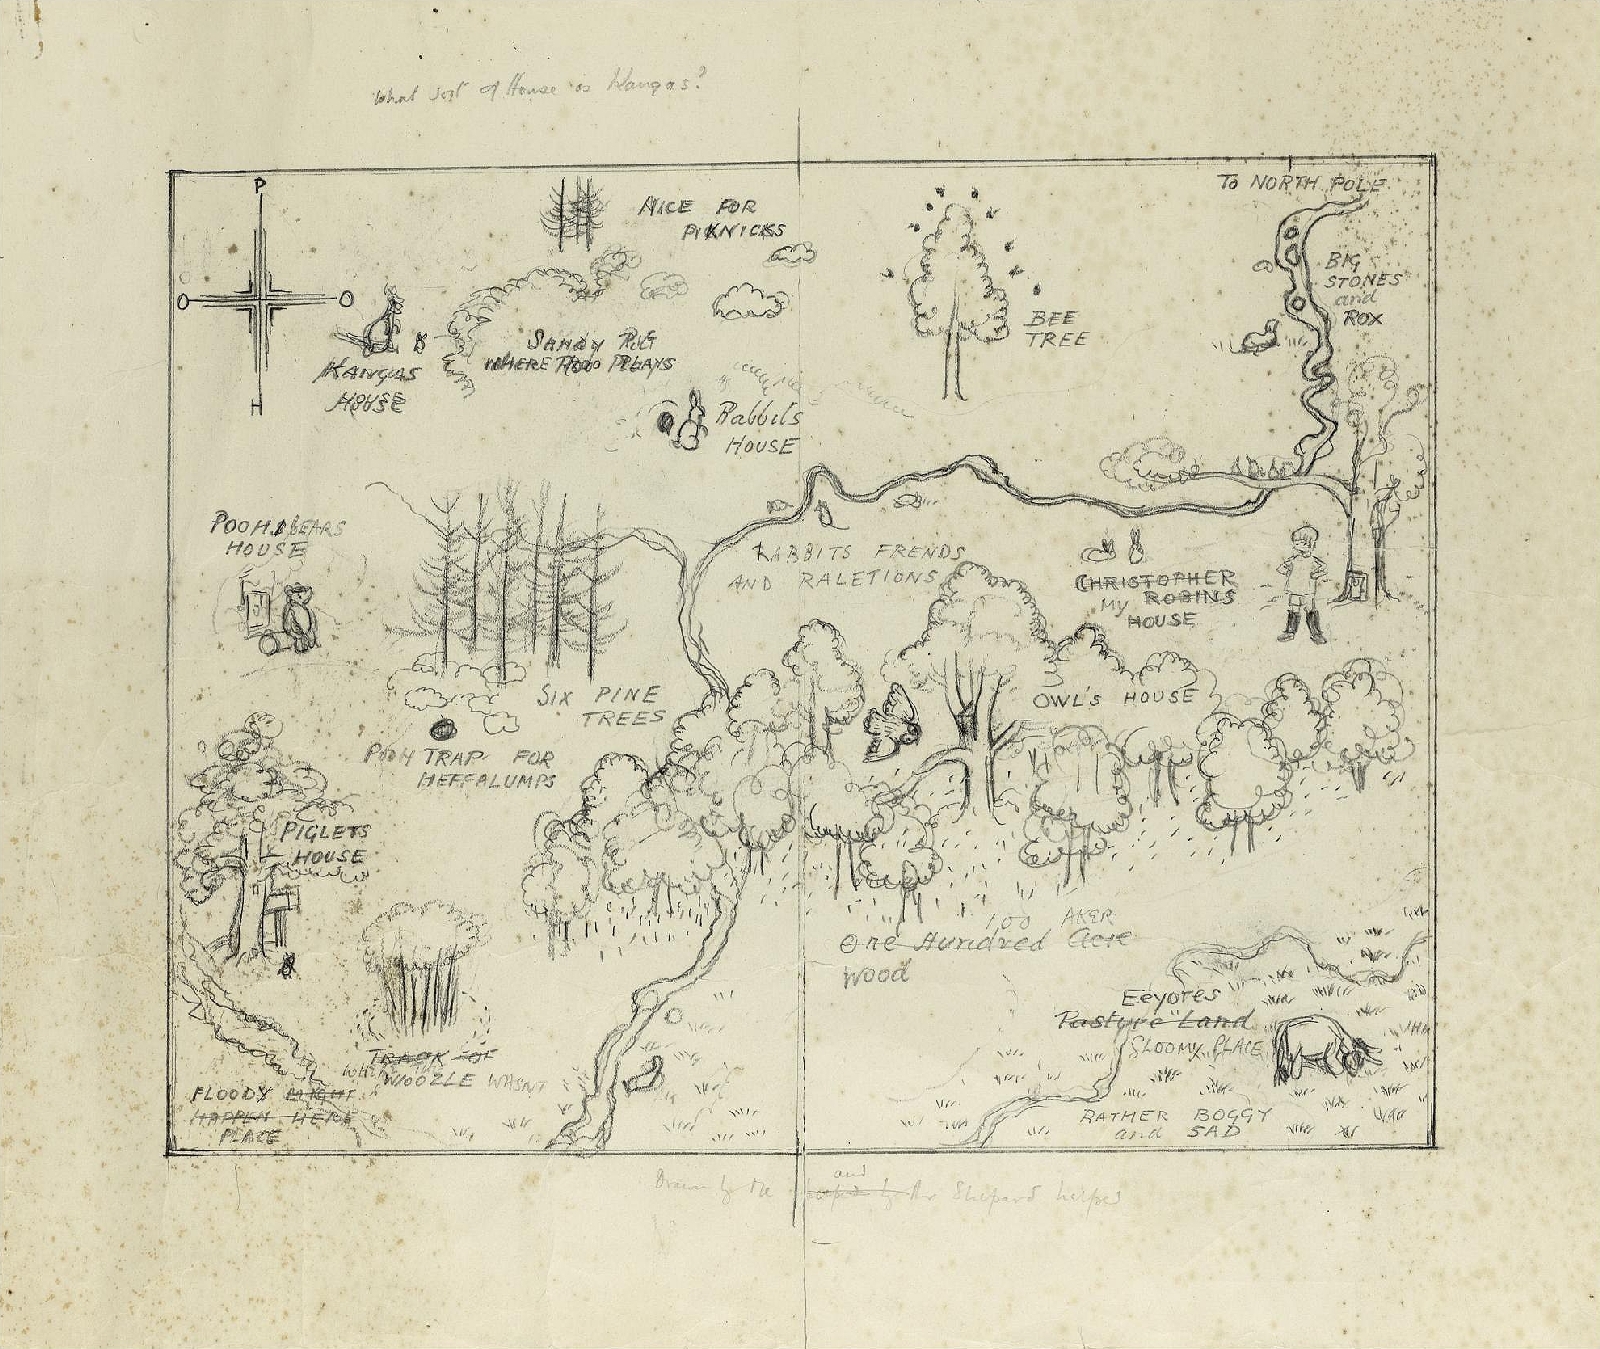 What sort of House is Kangas?
P
O
O
H
NICE FOR
PIKNICKS
To NORTH POLE
BIG
STONES
and
ROX
BEE
TREE
SANDY PIT
WHERE ROO PLAYS
KANGAS
HOUSE
Rabbits
HOUSE
POOH BEARS
HOUSE
RABBITS FRENDS
AND RALETIONS
CHRISTOPHER
My ROBINS
HOUSE
SIX PINE
TREES
OWL'S HOUSE
POOH TRAP FOR
HEFFALUMPS
PIGLETS
HOUSE
100 AKER
One Hundred Acre
Wood
Eeyores
Pasture Land
GLOOMY PLACE
TRACK OF
WOOZLE WASNT
FLOODY MIGHT
HAPPEN HERE
PLACE
RATHER BOGGY
and SAD
and
Drawn by me helped by Mr Shepard helped